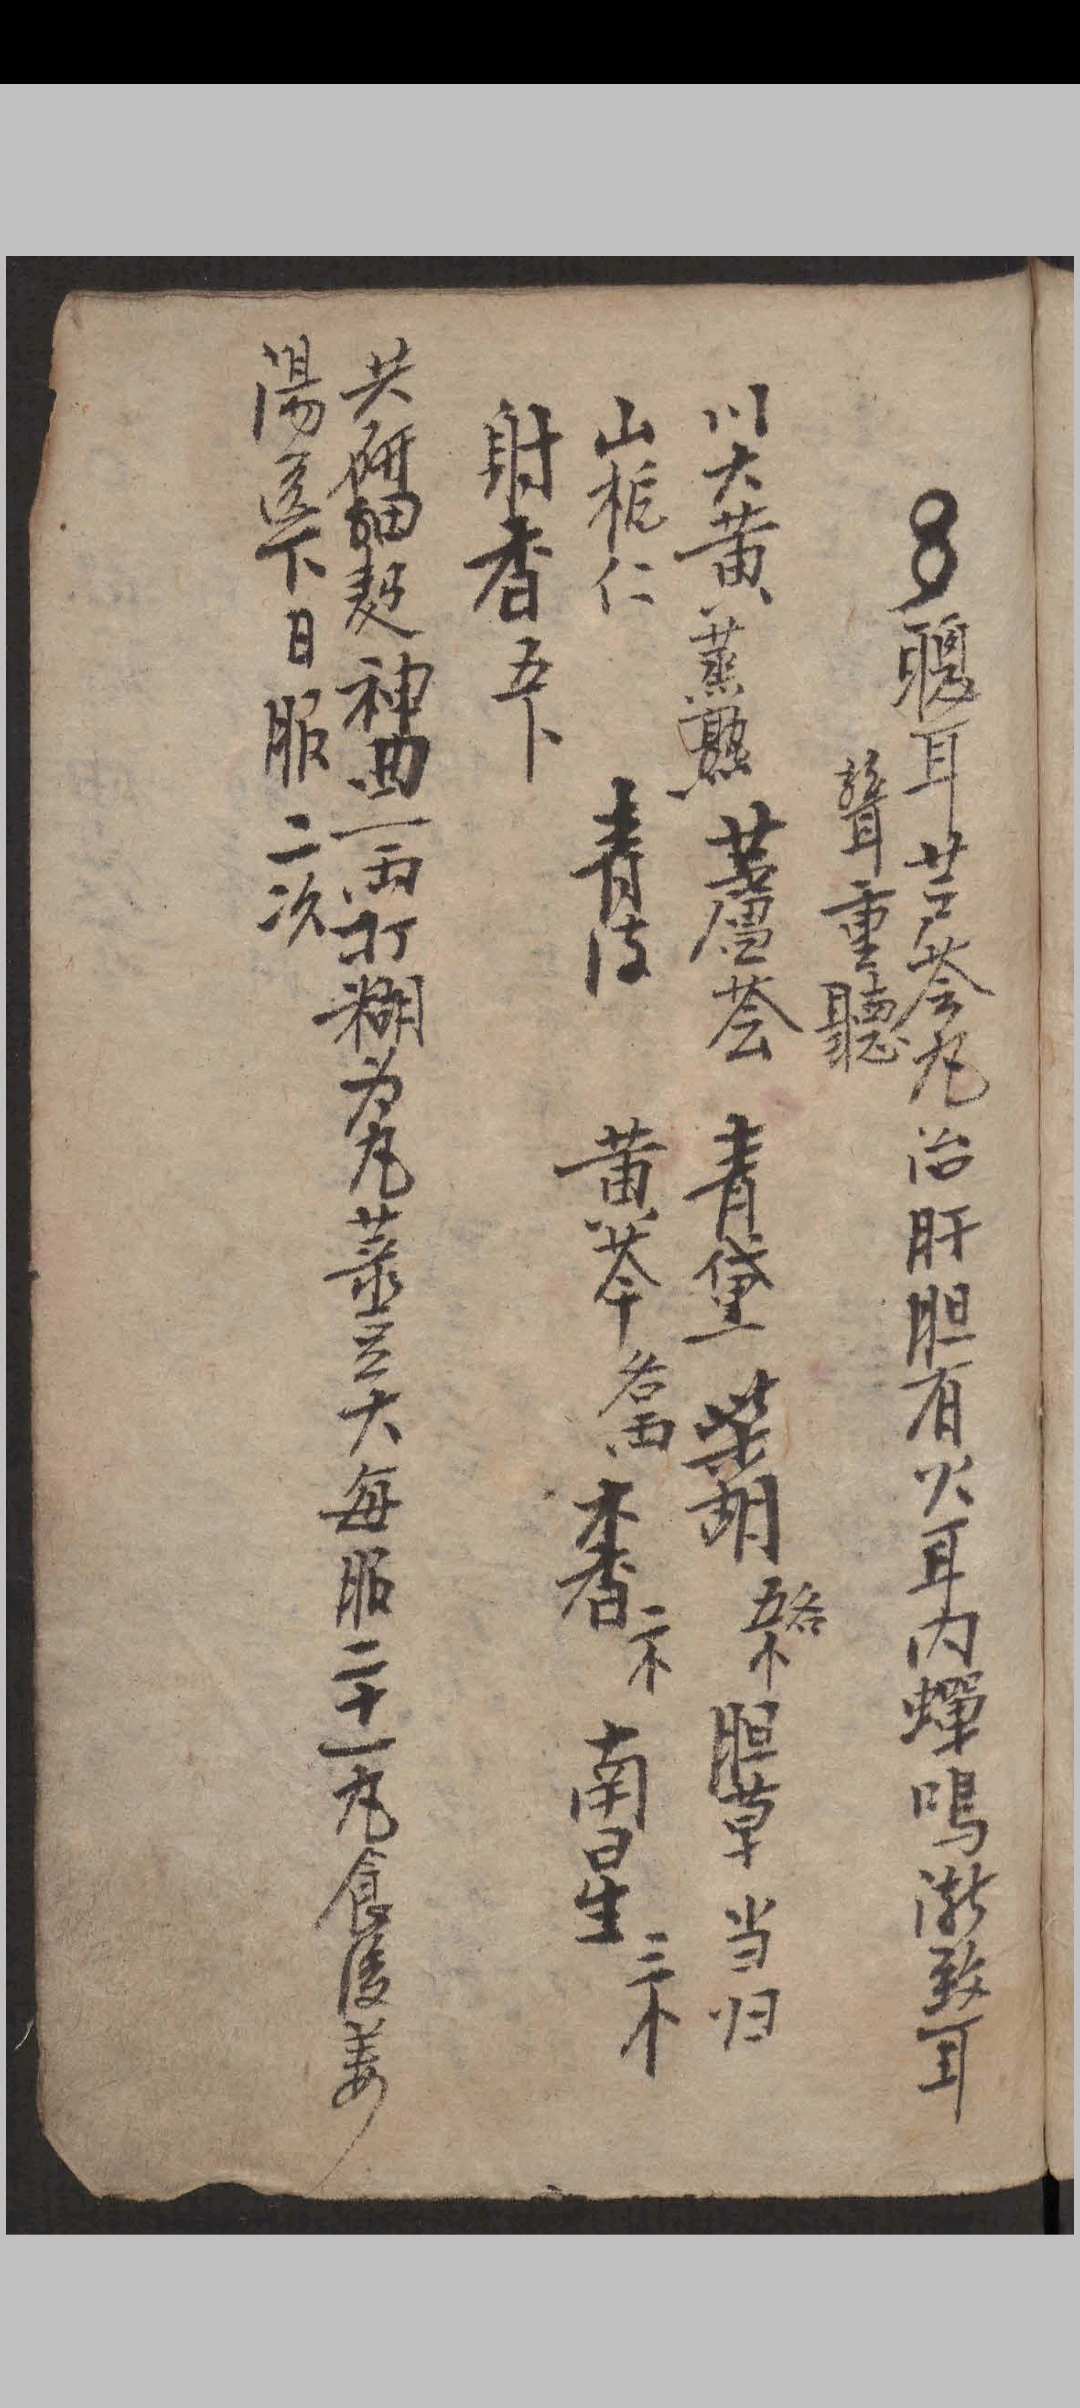 聰耳芦荟丸治肝胆有火耳内蟬鳴漸致耳
聾重聽
川大黄蒸熟 蘆荟 青黛 柴胡各五𠆢 胆草 当归
山栀仁 青皮 黄芩各一両 木香二𠆢 南星三𠆢
射香五卜
共研細麪神曲一両打糊为丸菉豆大每服二十一丸食後姜
湯送下日服二次